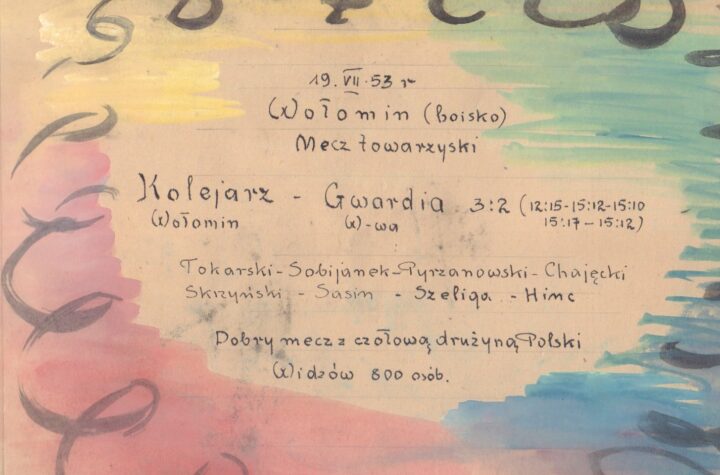 19.VII.53 r
Wołomin (boisko)
Mecz towarzyski
Kolejarz - Gwardia 3:2 (12:15-15:12-15:10
Wołomin W-wa 15:17-15:12)
Tokarski-Sobijanek-Pyrzanowski-Chajęcki
Skrzyński - Sasin - Szeliga - Hinc
Dobry mecz z czołową drużyną Polski
Widzów 800 osób.